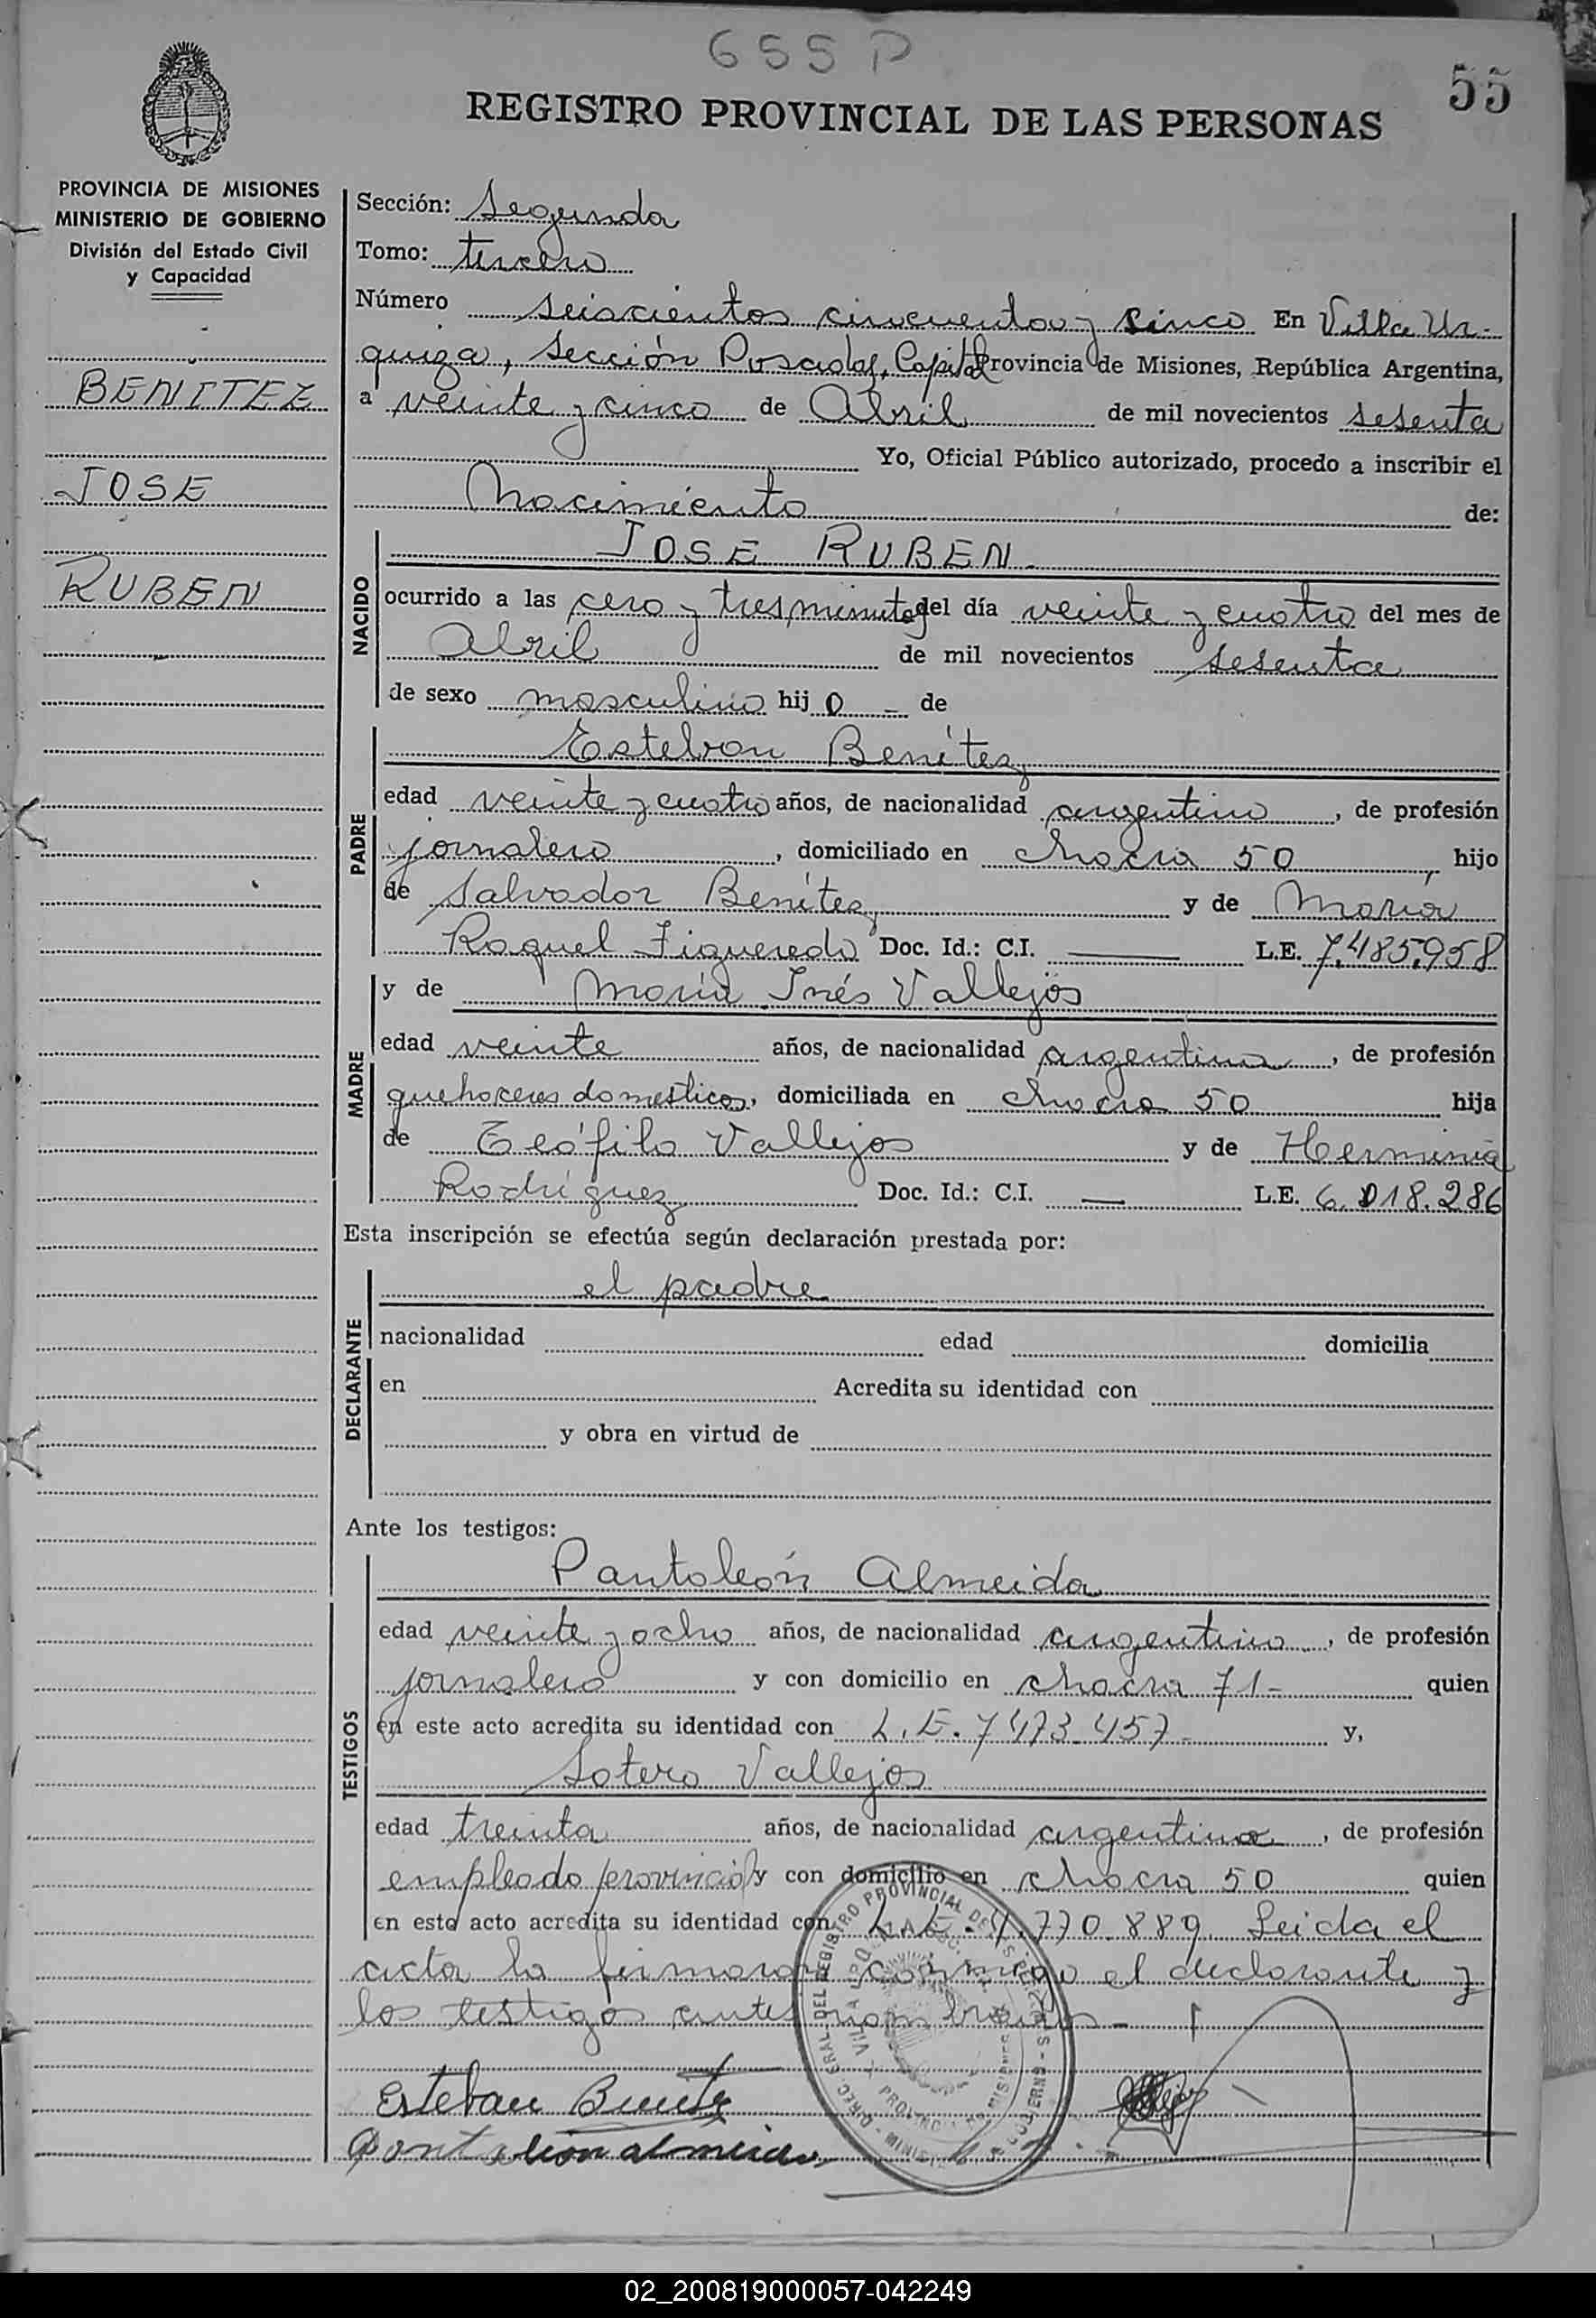 655 P
55
REGISTRO PROVINCIAL DE LAS PERSONAS
PROVINCIA DE MISIONES
MINISTERIO DE GOBIERNO
División del Estado Civil
y Capacidad
BENITEZ
JOSE
RUBEN
Sección: Segunda
Tomo: tercero
Número seiscientos cincuenta y cinco En Villa Ur-
quiza, Sección Posadas, Capital Provincia de Misiones, República Argentina,
a veinte y cinco de Abril de mil novecientos sesenta
Yo, Oficial Público autorizado, procedo a inscribir el
Nacimiento de:
NACIDO
JOSE RUBEN
ocurrido a las cero y tres minutos del día veinte y cuatro del mes de
Abril de mil novecientos sesenta
de sexo masculino hijo - de
PADRE
Esteban Benítez
edad veinte y cuatro años, de nacionalidad argentino, de profesión
jornalero, domiciliado en chacra 50, hijo
de Salvador Benítez y de María
Raquel Figueredo Doc. Id.: C.I. — L.E. 7.485.958
MADRE
y de María Inés Vallejos
edad veinte años, de nacionalidad argentina, de profesión
quehaceres domesticos, domiciliada en chacra 50 hija
de Teófilo Vallejos y de Herminia
Rodríguez Doc. Id.: C.I. — L.E. 6.018.286
Esta inscripción se efectúa según declaración prestada por:
DECLARANTE
el padre
nacionalidad edad domicilia
en Acredita su identidad con
y obra en virtud de
Ante los testigos:
TESTIGOS
Pantoleón Almeida
edad veinte y ocho años, de nacionalidad argentino, de profesión
jornalero y con domicilio en chacra 71- quien
en este acto acredita su identidad con L.E. 7473.457- y,
Sotero Vallejos
edad treinta años, de nacionalidad argentina, de profesión
empleado provincial y con domicilio en chacra 50 quien
en este acto acredita su identidad con L.E. 770.889. Leida el
acta la firmaron conmigo el declarante y
los testigos antes nombrados-
Esteban Benitez
Pantaleón almeida
02_200819000057-042249